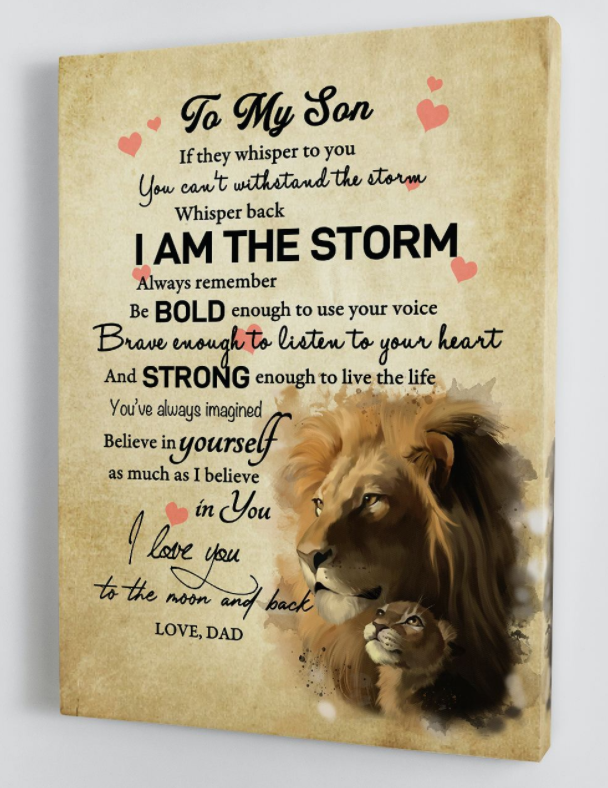 To My Son
If they whisper to you
You can't withstand the storm
Whisper back
I AM THE STORM
Always remember
Be BOLD enough to use your voice
Brave enough to listen to your heart
And STRONG enough to live the life
You've always imagined
Believe in yourself
as much as I believe
in You
I love you
to the moon and back
LOVE, DAD